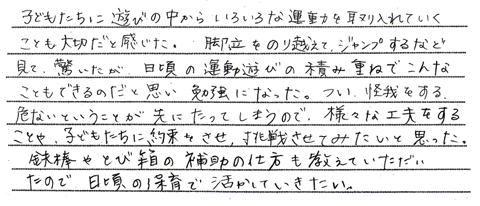 子どもたちに遊びの中からいろいろな運動を取り入れていく
ことも大切だと感じた。脚立をのり越えて、ジャンプするなど
見て、驚いたが、日頃の運動遊びの積み重ねでこんな
こともできるのだと思い勉強になった。つい、怪我をする、
危ないということが先にたってしまうので、様々な工夫をする
ことや、子どもたちに約束をさせ、挑戦させてみたいと思った。
鉄棒やとび箱の補助の仕方も教えていただい
たので、日頃の保育で活かしていきたい。